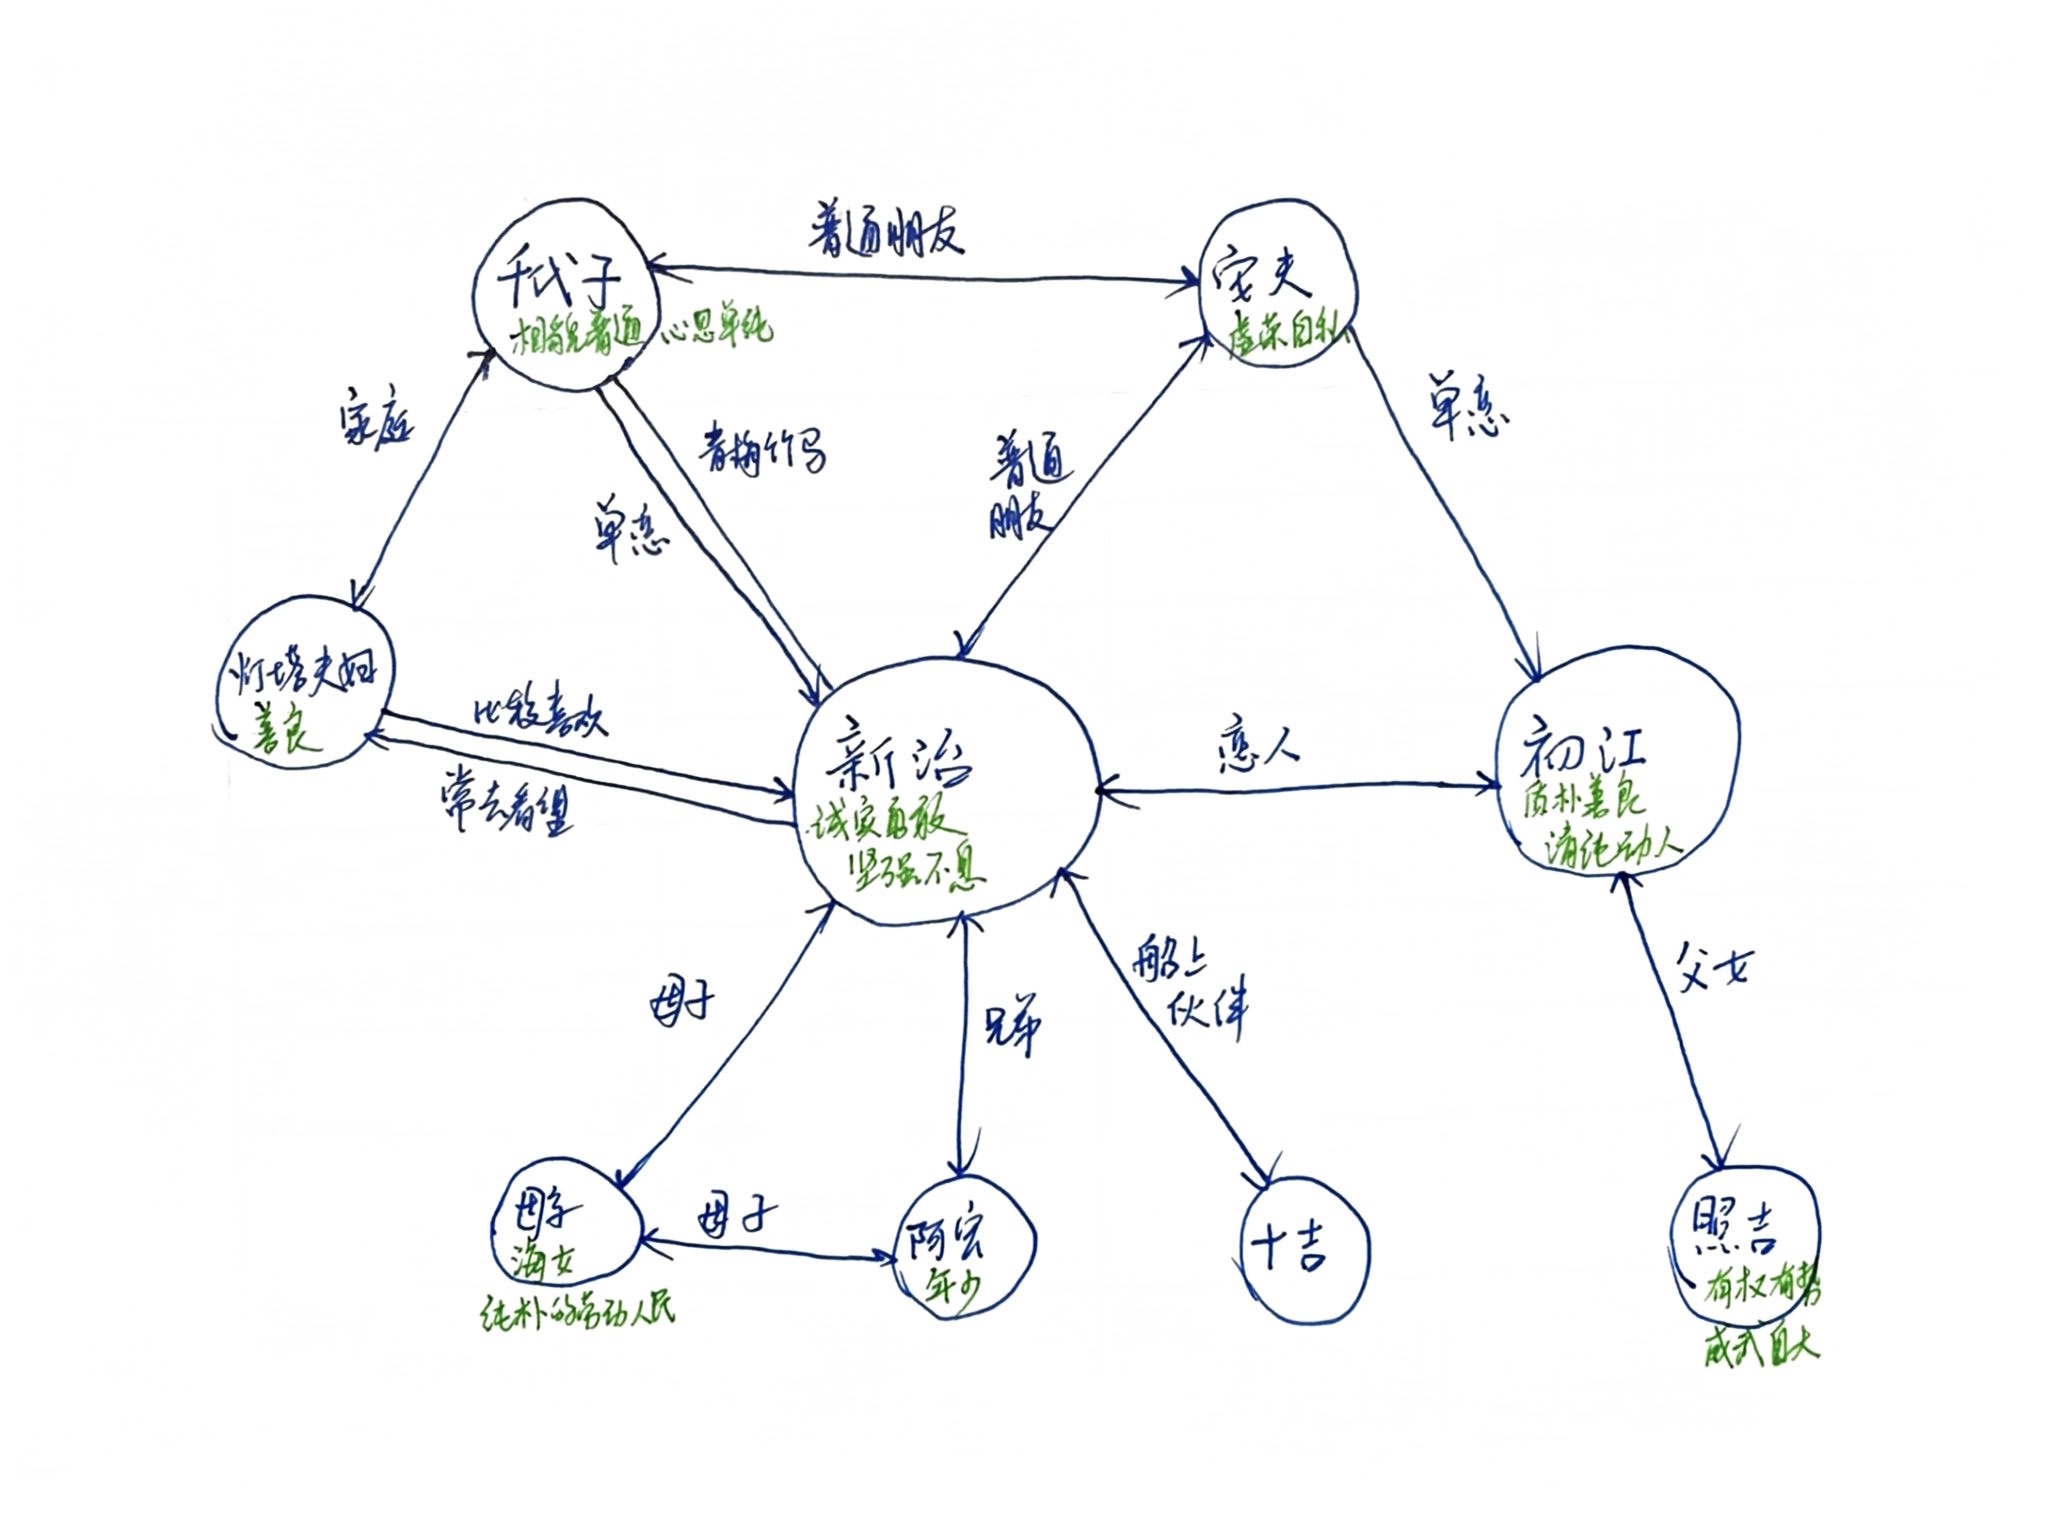 普通朋友
千代子
相貌普通 心思单纯
安夫
虚荣自私
家庭
青梅竹马
单恋
普通
朋友
单恋
灯塔夫妇
善良
比较喜欢
常去看望
新治
诚实勇敢
坚强不息
恋人
初江
质朴善良
清纯动人
母子
兄弟
船上
伙伴
父女
海女
纯朴的劳动人民
母子
阿宏
年少
十吉
照吉
有权有势
威武自大